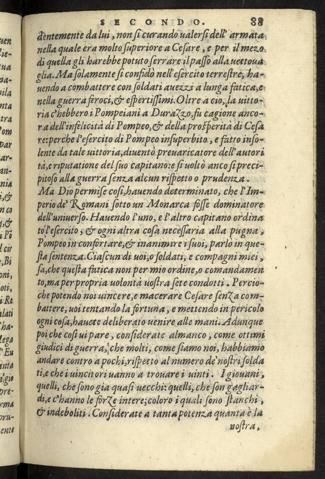 SECONDO. 88
dentemente da lui, non si curando ualersi dell'armata
nella quale era molto superiore a Cesare, e per il mezo
di quella gli harebbe potuto serrare il passo alla uettoua
glia. Ma solamente si confidò nell'esercito terrestre, ha-
uendo a combattere con soldati auezzi a lunga fatica, e
nella guerra feroci, & espertissimi. Oltre a cio, la uitto-
ria c'hebbero i Pompeiani a Durazzo, fu cagione anco-
ra dell'infelicità di Pompeo, & della prosperità di Cesa
re: perche l'esercito di Pompeo insuperbito, e fatto inso-
lente da tale uittoria, diuentò preuaricatore dell'autori
tà, e riputatione del suo capitano: e si uoltò anco sì preci-
pitoso alla guerra senza alcun rispetto o prudenza.
Ma Dio permise cosi, hauendo determinato, che l'Im-
perio de' Romani sotto un Monarca fosse dominatore
dell'uniuerso. Hauendo l'uno, e l'altro capitano ordina
to l'esercito, & ogni altra cosa necessaria alla pugna,
Pompeo in confortare, & inanimire i suoi, parlò in que-
sta sentenza. Ciascun di uoi, o soldati, e compagni miei,
sa, che questa fatica non per mio ordine, o comandamen
to, ma per propria uolontà uostra sete condotti. Percio-
che potendo noi uincere, e macerare Cesare senza com-
battere, uoi tentando la fortuna, e mettendo in pericolo
ogni cosa, hauete deliberato uenire alle mani. Adunque
poi che cosi ui pare, considerate almanco, come ottimi
giudici di guerra, che molti, come siamo noi, habbiamo
andare contro a pochi, rispetto al numero de' nostri solda
ti, e che i uincitori uanno a trouare i uinti. I giouani,
quelli, che sono gia quasi uecchi: quelli, che son gagliar-
di, e c'hanno le forze intere; coloro i quali sono stanchi,
& indeboliti. Considerate a tanta potenza quanta è la
uostra,